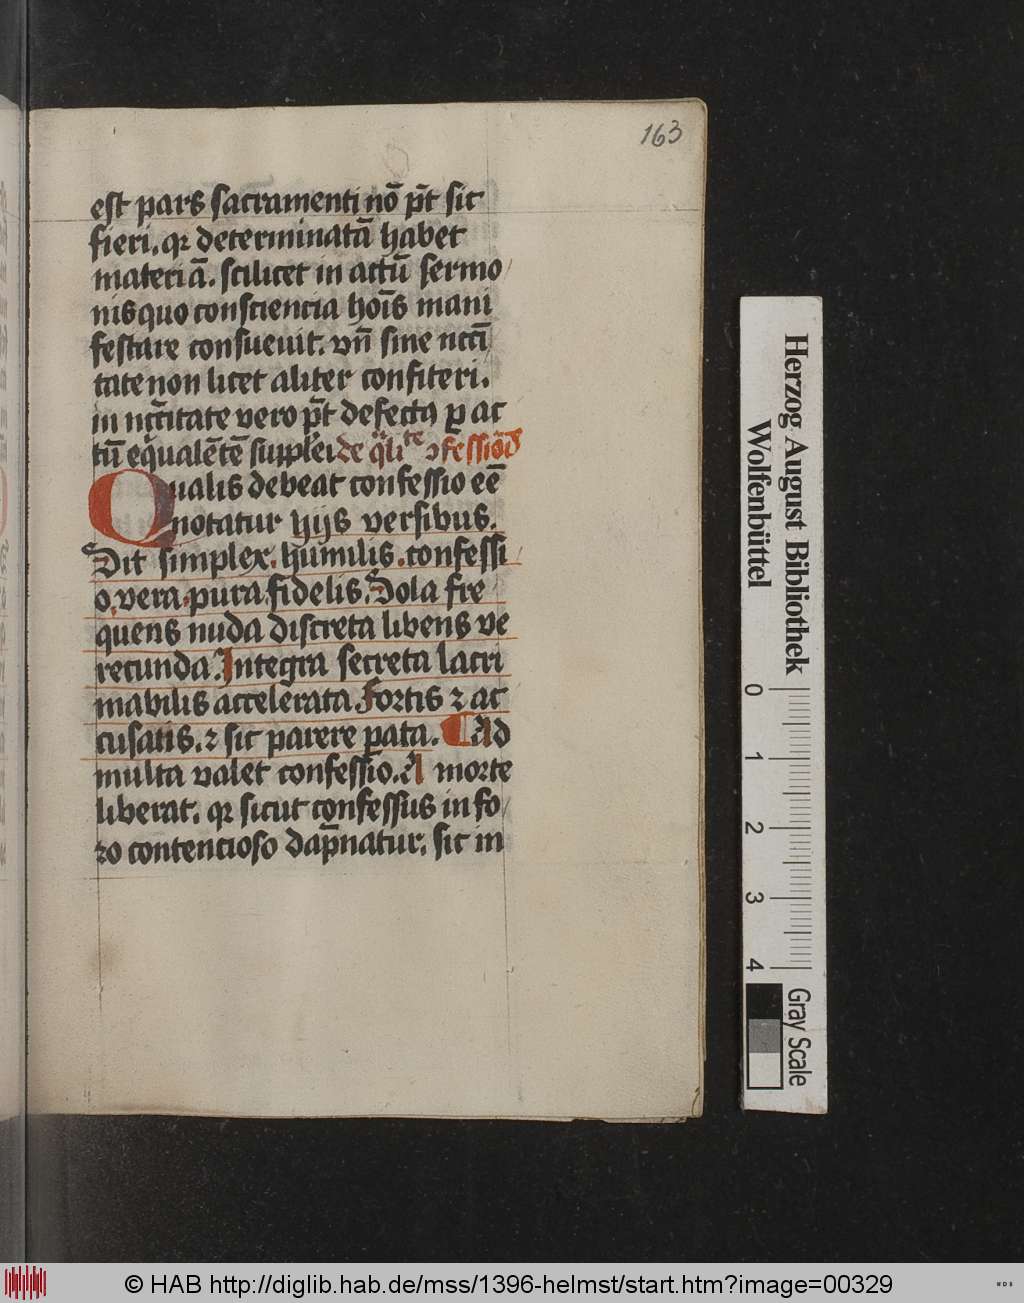 163
est pars sacramenti nō p̄t sic
fieri. qꝛ determinatā habet
materiā. scilicet in actū sermo
nis quo consciencia hoīs mani
festare consueuit. vn̄ sine nccī
tate non licet aliter confiteri.
in nccītate vero p̄t defectꝰ ꝑ ac
tū equalētē suppleri de q̄litate ꝯfessiōis
Qualis debeat confessio eē
notatur hijs versibus.
Sit simplex. humilis. confessi
o, vera. pura fidelis. Sola fre
quens nuda discreta libens ve
recunda. Integra secreta lacri
mabilis accelerata Fortis ⁊ ac
cusatis. ⁊ sit parere ꝑata. ¶ Ad
multa valet confessio. A morte
liberat. qꝛ sicut confessus in fo
ro contencioso dāpnatur. sic in
Herzog August Bibliothek
Wolfenbüttel
0 1 2 3 4
Gray Scale
© HAB http://diglib.hab.de/mss/1396-helmst/start.htm?image=00329
WDB